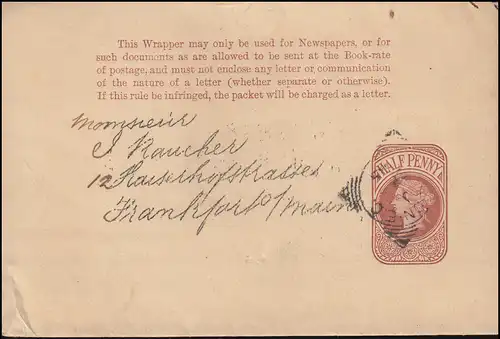 This Wrapper may only be used for Newspapers, or for
such documents as are allowed to be sent at the Book-rate
of postage, and must not enclose any letter or communication
of the nature of a letter (whether separate or otherwise).
If this rule be infringed, the packet will be charged as a letter.
Monsieur
J Raucher
12 Kaiserhofstrasse
Frankfort o/main
HALF PENNY